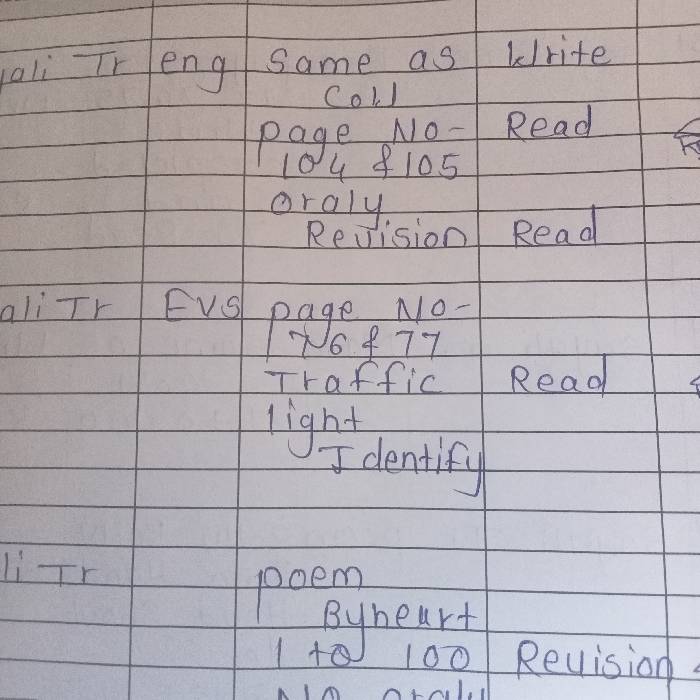 ali Tr eng Same as Write
Coll
page No- Read
104 & 105
oraly
Revision Read
ali Tr EVS page No-
76 & 77
Traffic Read
light
Identify
li Tr poem
Byheurt
1 to 100 Revision
No oraly